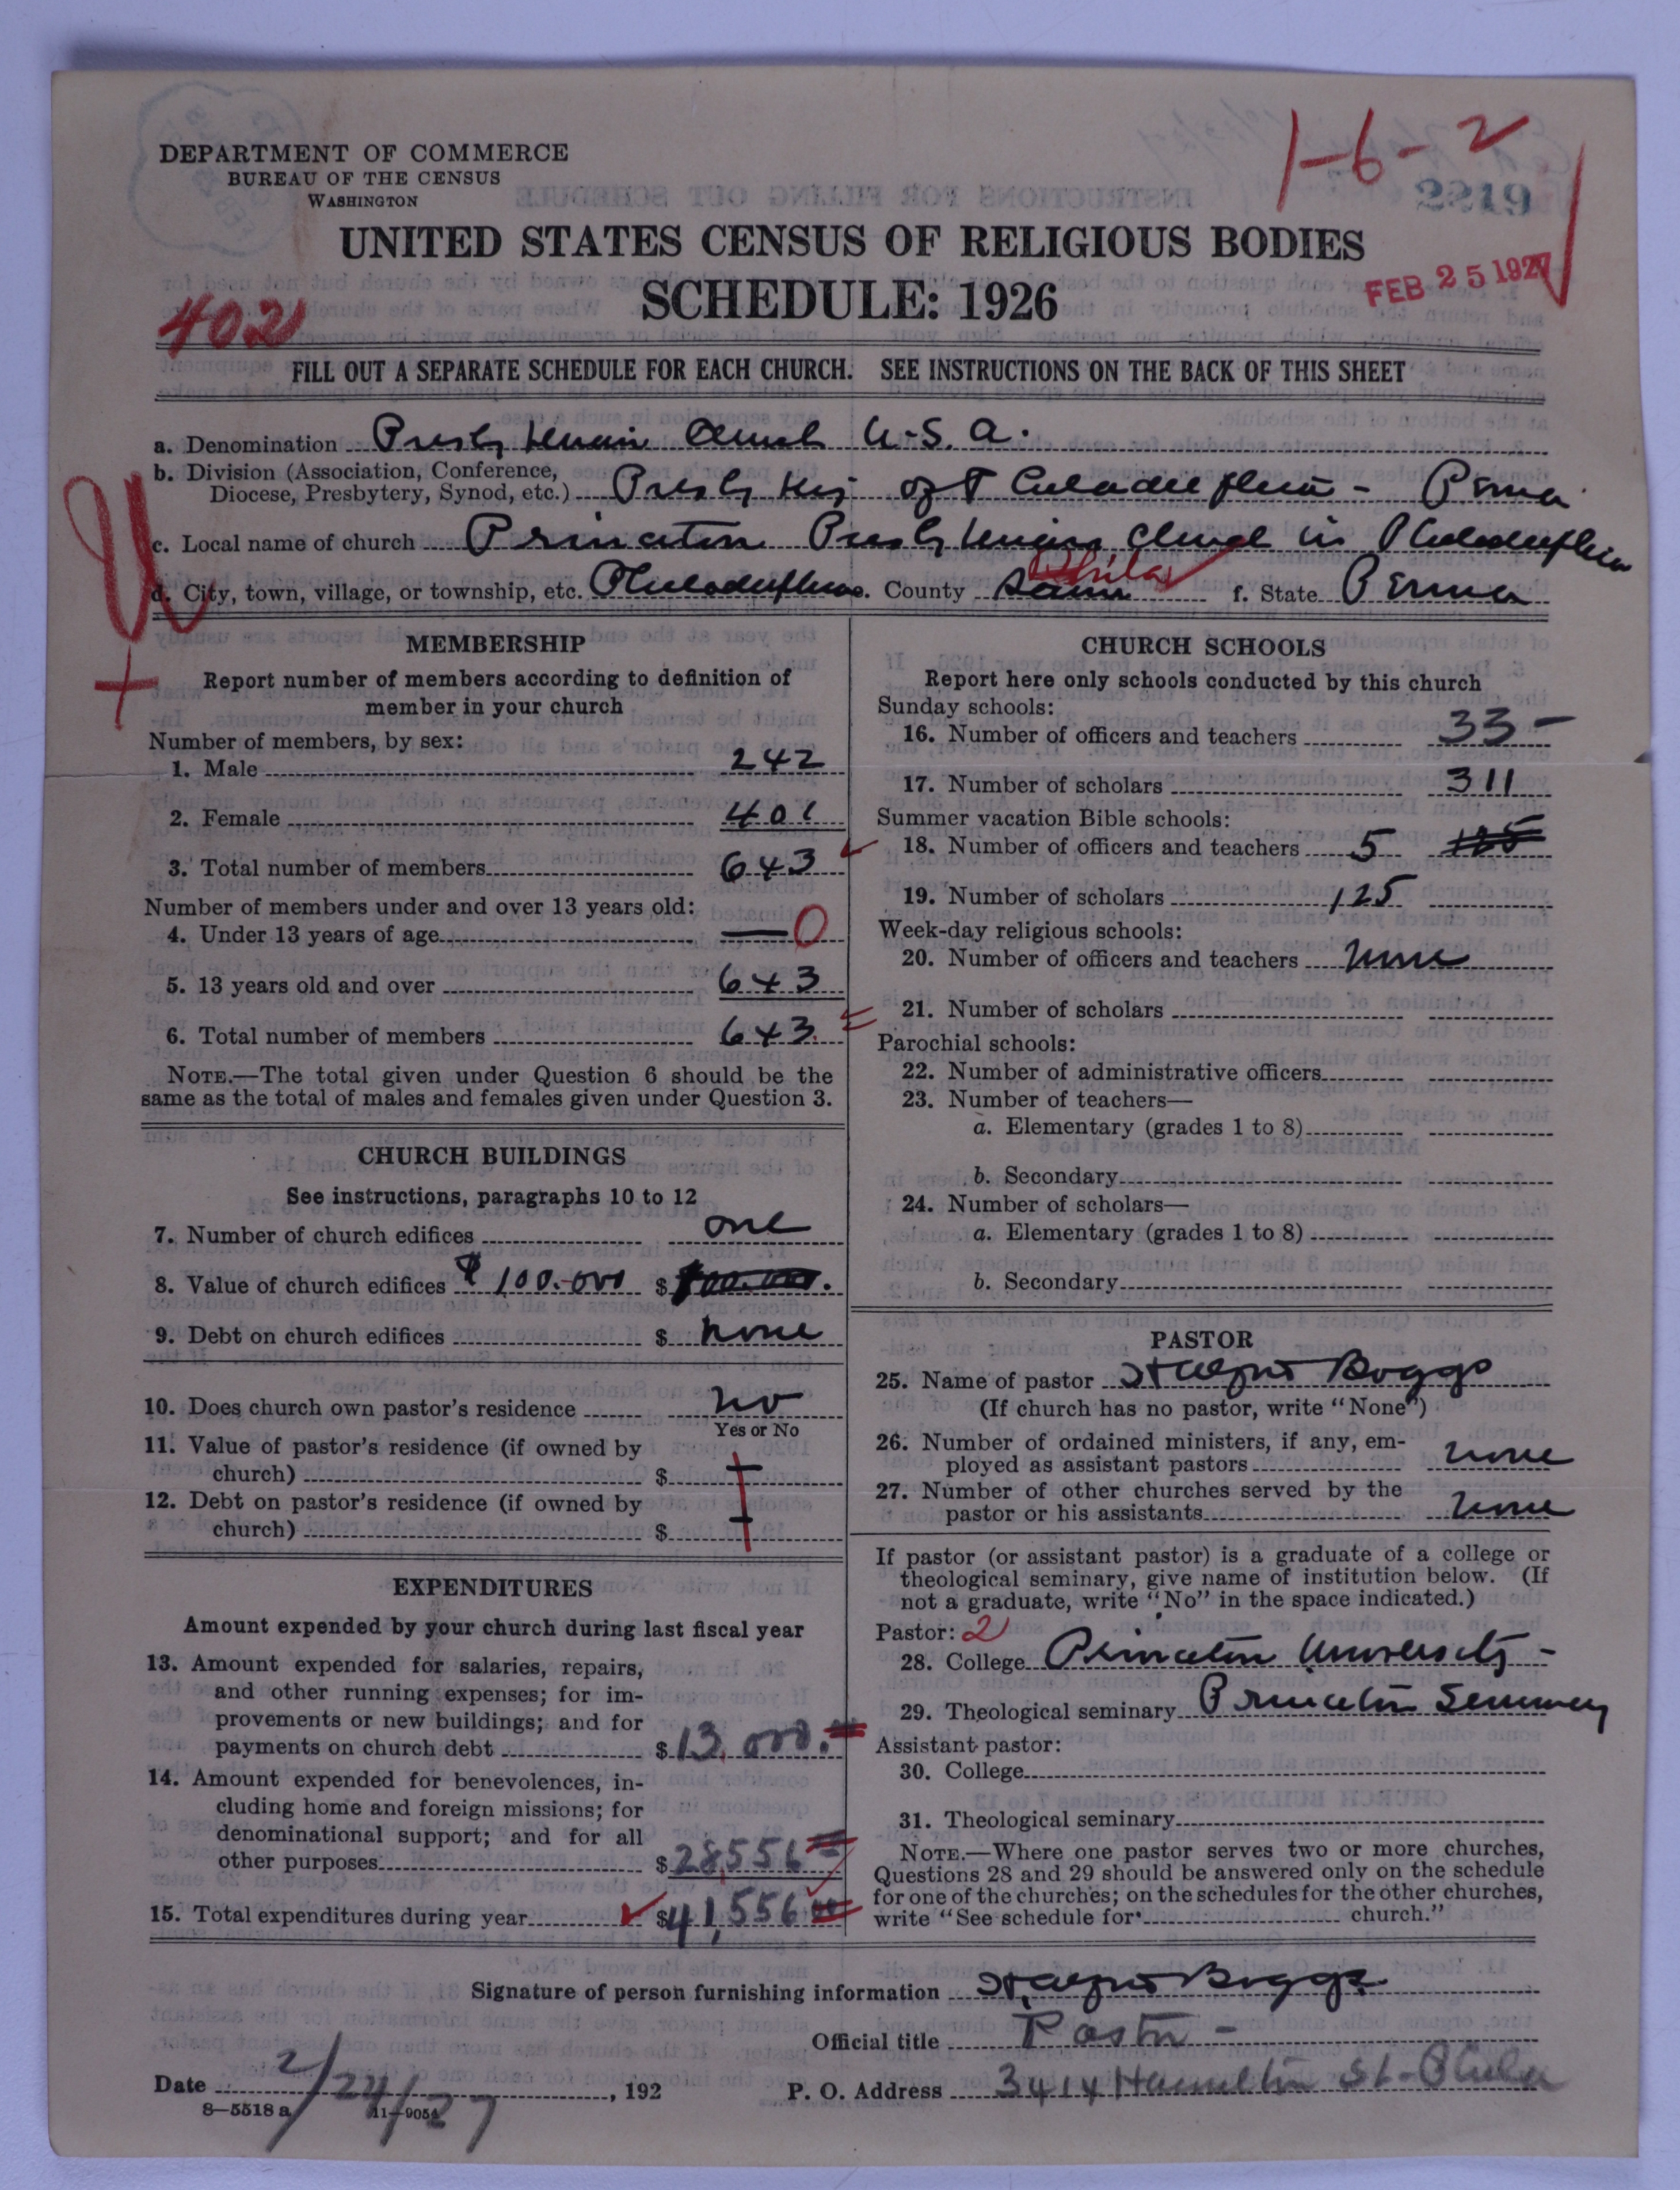 DEPARTMENT OF COMMERCE
BUREAU OF THE CENSUS
WASHINGTON
1-6-2
2219
UNITED STATES CENSUS OF RELIGIOUS BODIES
SCHEDULE: 1926
FEB 25 1927
402
FILL OUT A SEPARATE SCHEDULE FOR EACH CHURCH. SEE INSTRUCTIONS ON THE BACK OF THIS SHEET
a. Denomination Presbyterian Church U.S.A.
b. Division (Association, Conference,
Diocese, Presbytery, Synod, etc.) Presbytery of Philadelphia - Penna
c. Local name of church Princeton Presbyterian Church in Philadelphia
d. City, town, village, or township, etc. Philadelphia e. County Same Phila f. State Penna
MEMBERSHIP
Report number of members according to definition of
member in your church
Number of members, by sex:
1. Male 242
2. Female 401
3. Total number of members 643
Number of members under and over 13 years old:
4. Under 13 years of age — 0
5. 13 years old and over 643
6. Total number of members 643
NOTE.—The total given under Question 6 should be the
same as the total of males and females given under Question 3.
CHURCH BUILDINGS
See instructions, paragraphs 10 to 12
7. Number of church edifices one
8. Value of church edifices $100.000 $ 100.000.
9. Debt on church edifices $ none
10. Does church own pastor's residence no
Yes or No
11. Value of pastor's residence (if owned by
church) $
12. Debt on pastor's residence (if owned by
church) $
EXPENDITURES
Amount expended by your church during last fiscal year
13. Amount expended for salaries, repairs,
and other running expenses; for im-
provements or new buildings; and for
payments on church debt $ 13,000.
14. Amount expended for benevolences, in-
cluding home and foreign missions; for
denominational support; and for all
other purposes $ 28,556
15. Total expenditures during year $ 41,556
CHURCH SCHOOLS
Report here only schools conducted by this church
Sunday schools:
16. Number of officers and teachers 33 -
17. Number of scholars 311
Summer vacation Bible schools:
18. Number of officers and teachers 5 125
19. Number of scholars 125
Week-day religious schools:
20. Number of officers and teachers none
21. Number of scholars
Parochial schools:
22. Number of administrative officers
23. Number of teachers—
a. Elementary (grades 1 to 8)
b. Secondary
24. Number of scholars—
a. Elementary (grades 1 to 8)
b. Secondary
PASTOR
25. Name of pastor Boggs
(If church has no pastor, write "None")
26. Number of ordained ministers, if any, em-
ployed as assistant pastors none
27. Number of other churches served by the
pastor or his assistants none
If pastor (or assistant pastor) is a graduate of a college or
theological seminary, give name of institution below. (If
not a graduate, write "No" in the space indicated.)
Pastor: 2
28. College Princeton University -
29. Theological seminary Princeton Seminary
Assistant pastor:
30. College
31. Theological seminary
NOTE.—Where one pastor serves two or more churches,
Questions 28 and 29 should be answered only on the schedule
for one of the churches; on the schedules for the other churches,
write "See schedule for church."
Signature of person furnishing information Boggs
Official title Pastor -
Date 2/24/27, 192
P. O. Address 3414 Hamilton St - Phila
8—5518 a 11—9054